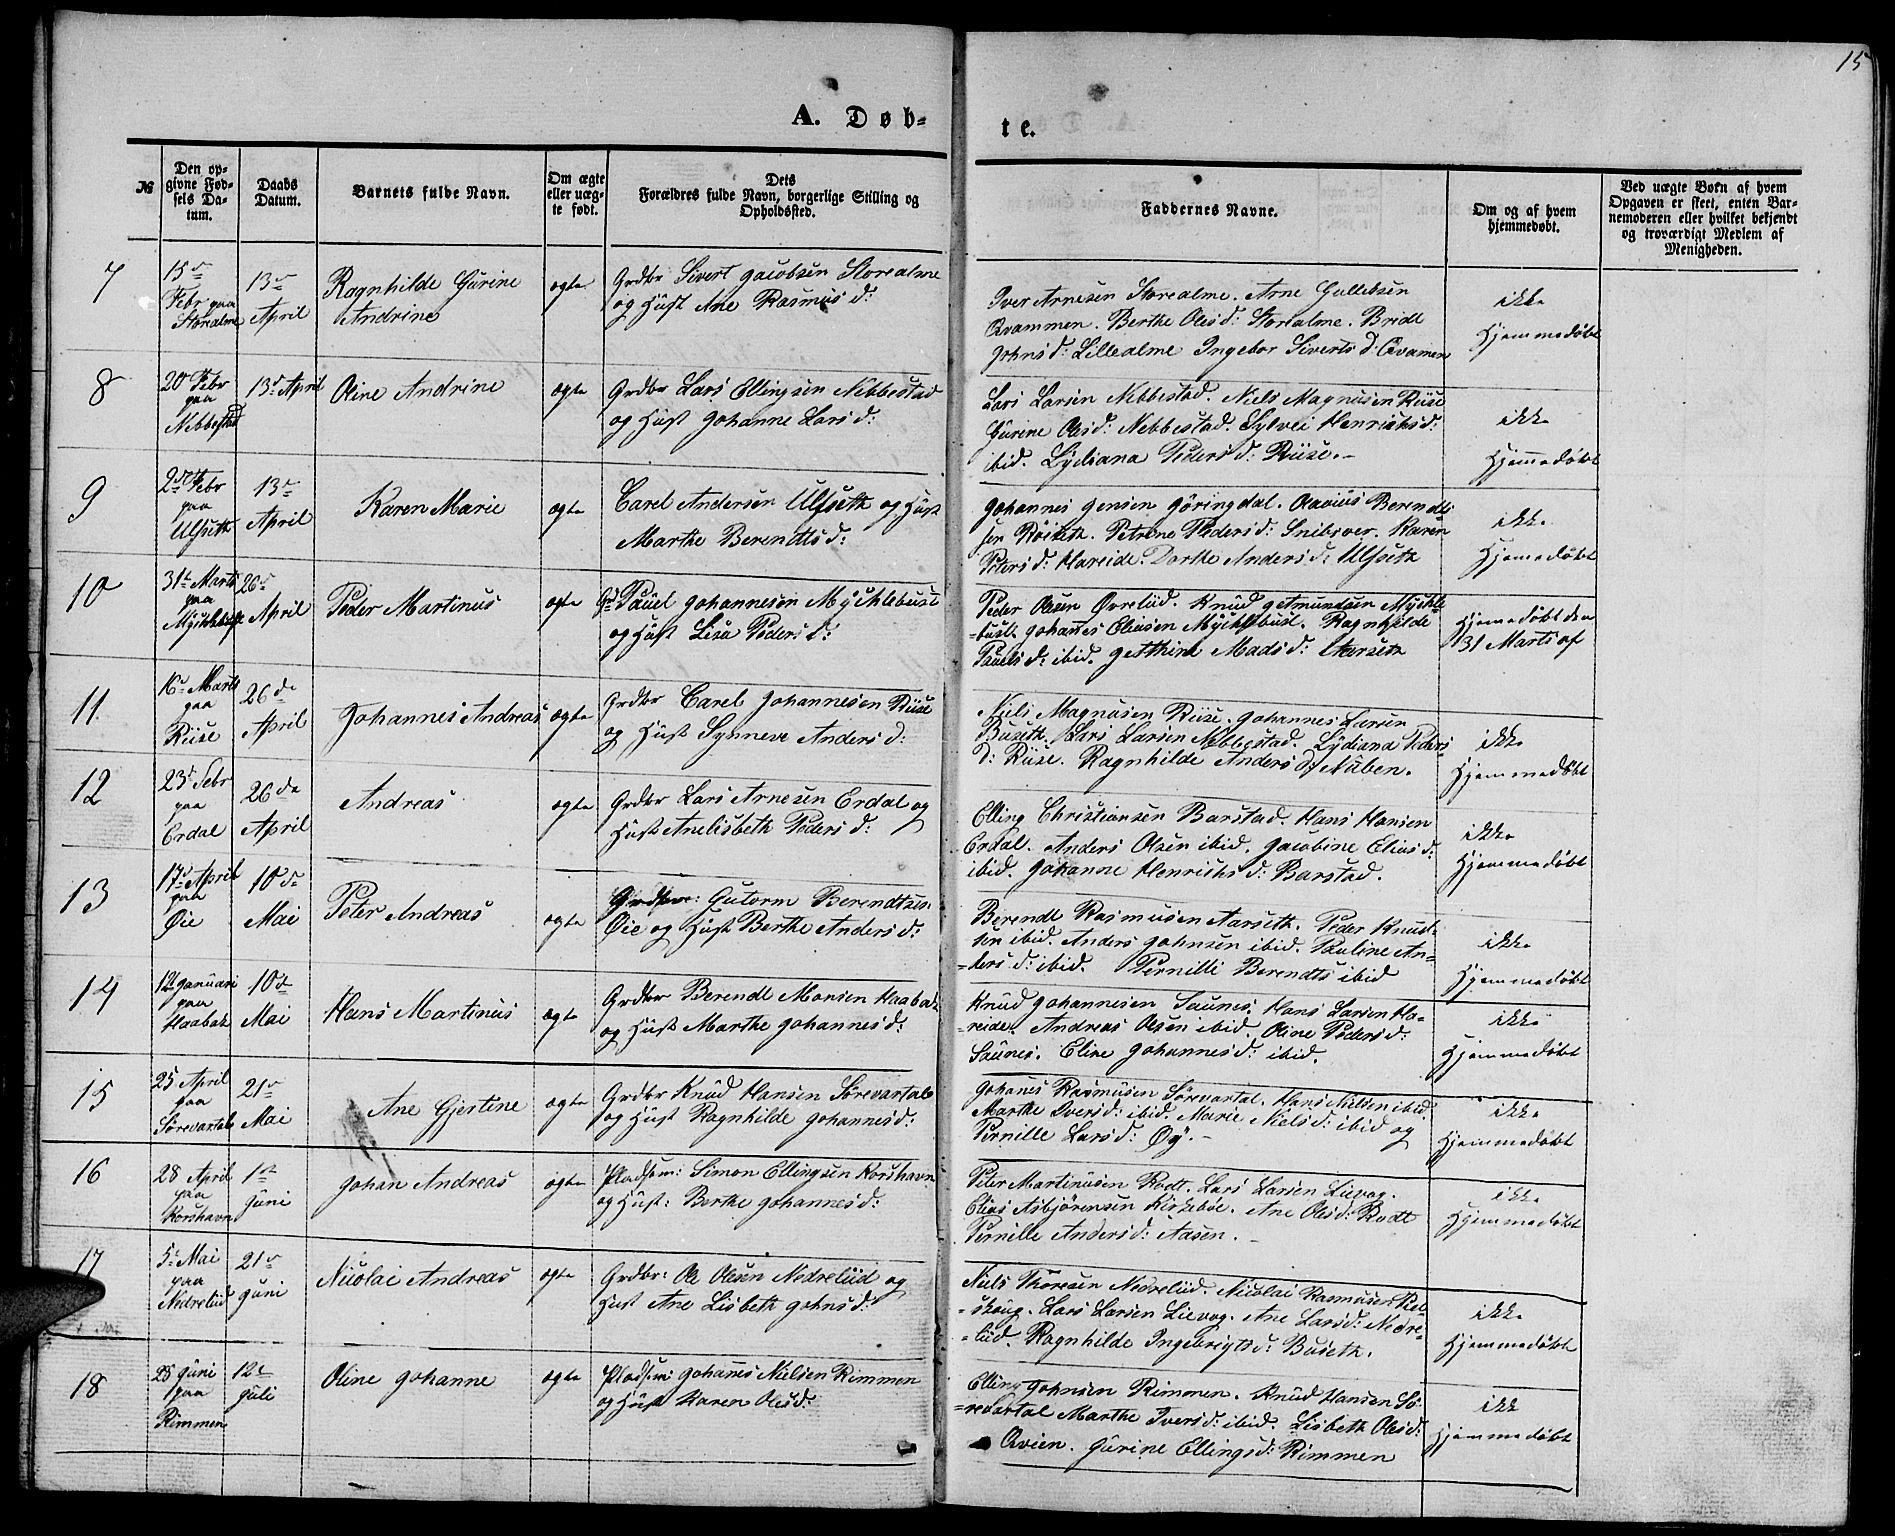 15
A. Døb-
te.
№
Den op-
givne Fød-
sels Da-
tum.
Daabs
Datum.
Barnets fulde Navn.
Om ægte
eller uæg-
te født.
Dets
Forældres fulde Navn, borgerlige Stilling og
Opholdssted.
Faddernes Navne.
Om og af hvem
hjemmedøbt.
Ved uægte Børn af hvem
Opgaven er skeet, enten Bar-
nemoderen eller hvilket bekjendt
og troværdigt Medlem af
Menigheden.
7
15de
Febr paa
Storalme
13de
April
Ragnhilde Gurine
Andrine
ægte
Grdbr Sivert Jacobsen Storealme
og Hust Ane Rasmusd:
Iver Arnesen Storealme. Arne Gullebsen
Qvammen. Berthe Olesd: Storealme. Bridt
Johnsd: Lillealme Ingebor Sivertsd: Qvamen
ikke
Hjemmedøbt
8
20de Febr
paa
Nebbestad
13de April
Oline Andrine
ægte
Grdbr Lars Ellingsen Nebbestad
og Hust Johanne Larsd:
Lars Larsen Nebbestad. Niels Magnusen Riise
Gurine Olesd: Nebbestad. Sylvei Henrichsd:
ibid. Lydiana Pedersd: Riise.-
ikke
Hjemmedøbt
9
Febr
paa
Ulfseth
13de
April
Karen Marie
ægte
Carel Andersen Ulfseth og Hust
Marthe Berendtsd:
Johannes Jensen Göringdal. Olavius Berendt-
sen Röiseth. Petrine Pedersd: Snibsøer. Karen
Petersd: Hareide. Dorthe Andersd: Ulfseth
ikke
Hjemedøbt
10
31te Marts
paa
Myklebust
26de
April
Peder Martinus
ægte
Gr Paüel Johannesen Mÿcklebust
og Hust Lisa Pedersd:
Peder Olsen Øvreliid. Knüd Getmundsen Myckle-
=bust. Johanes Eliasen Mÿcklebust. Ragnhilde
Paulsd: ibid. Jetthine Madsd: Aarseth
Hjemedøbt den
31 Marts af
11
16de Marts
paa
Riise
26de
April
Johannes Andreas
ægte
Grdbr Carel Johannesen Riise
og Hust Synneve Andersd:
Niels Magnüsen Riise. Johannes Larsen
Buseth. Lars Larsen Nebbestad. Lÿdiana Peders
d: Riise. Ragnhilde Andersd:
ikke
Hjemmedøbt
12
23de Febr
paa
Erdal
26de
April
Andreas
ægte
Grdbr Lars Arnesen Erdal og
Hust Anelisbeth Pedersd:
Elling Christiansen Barstad. Hans Hansen
Erdal. Anders Olsen ibid. Jacobine Eliasd:
ibid. Johanne Henrichsd: Barstad.
ikke
Hjemmedøbt
13
17de April
paa
Øie
10de
Mai
Peter Andreas
ægte
Guttorm Berendtsen
Øie og Hust Berthe Andersd:
Berendt Rasmusen Aarseth. Peder Knud-
sen ibid. Anders Johnsen ibid. Pauline An=
=dersd: ibid. Pernilli Berendts ibid
ikke
Hjemmedøbt
14
12te Januari
paa
Haabak
10de
Mai
Hans Martinus
ægte
Grdbr Berendt Monsen Haabak
og Hust Marthe Johannesd:
Knud Johannesen Saunes. Hans Larsen Ha-
=reide. Andreas Olsen ibid. Oline Pedersd:
Saunes. Eline Johannesd: ibid.
ikke
Hjemmedøbt
15
25 April
paa
Sørevartal
21de
Mai
Ane Gjertine
ægte
Grdbr Knüd Hansen Sørevartal
og Hust Ragnhilde Johannesd:
Johanes Rasmusen Sørevartal. Hans Nilsen ibid
Marthe Iversd: ibid. Marie Nielsd: ibid og
Pernille Larsd: Øÿ.-
ikke
Hjemmedøbt
16
28 April
paa
Korshavn
1ste
Juni
Johan Andreas
ægte
Pladsm: Simon Ellingsen Korshavn
og Hust: Berthe Johannesd:
Peter Martinusen Rodt. Lars Larsen Lievog.
Elias Asbjørensen Kirkebøe. Ane Olesd: Rodt
Pernille Andersd: Aasen.-
ikke
Hjemmedøbt
17
5te Mai
paa
Nedreliid
21de
Juni
Nicolai Andreas
ægte
Grdbr: Ole Olesen Nedreliid og
Hust Ane Lisbeth Johnsd:
Niels Thoresen Nedreliid. Nicolai Rasmusen Piel-
=skoug. Lars Larsen Lievog. Ane Larsd: Nedre-
=liid. Ragnhilde Ingebrigtsd: Buseth.
ikke
Hjemmedøbt
18
Juni
paa
Rimmen
12te
Juli
Oline Johanne
ægte
Pladsm: Johanes Nielsen Rimmen
og Hust Karen Olesd:
Elling Johnsen Rimmen. Knud Hansen Sø-
=revartal Marthe Iversd: ibid. Lisbeth Olesd:
Qvien. Gürine Ellingsd: Rimmen
ikke
Hjemmedøbt